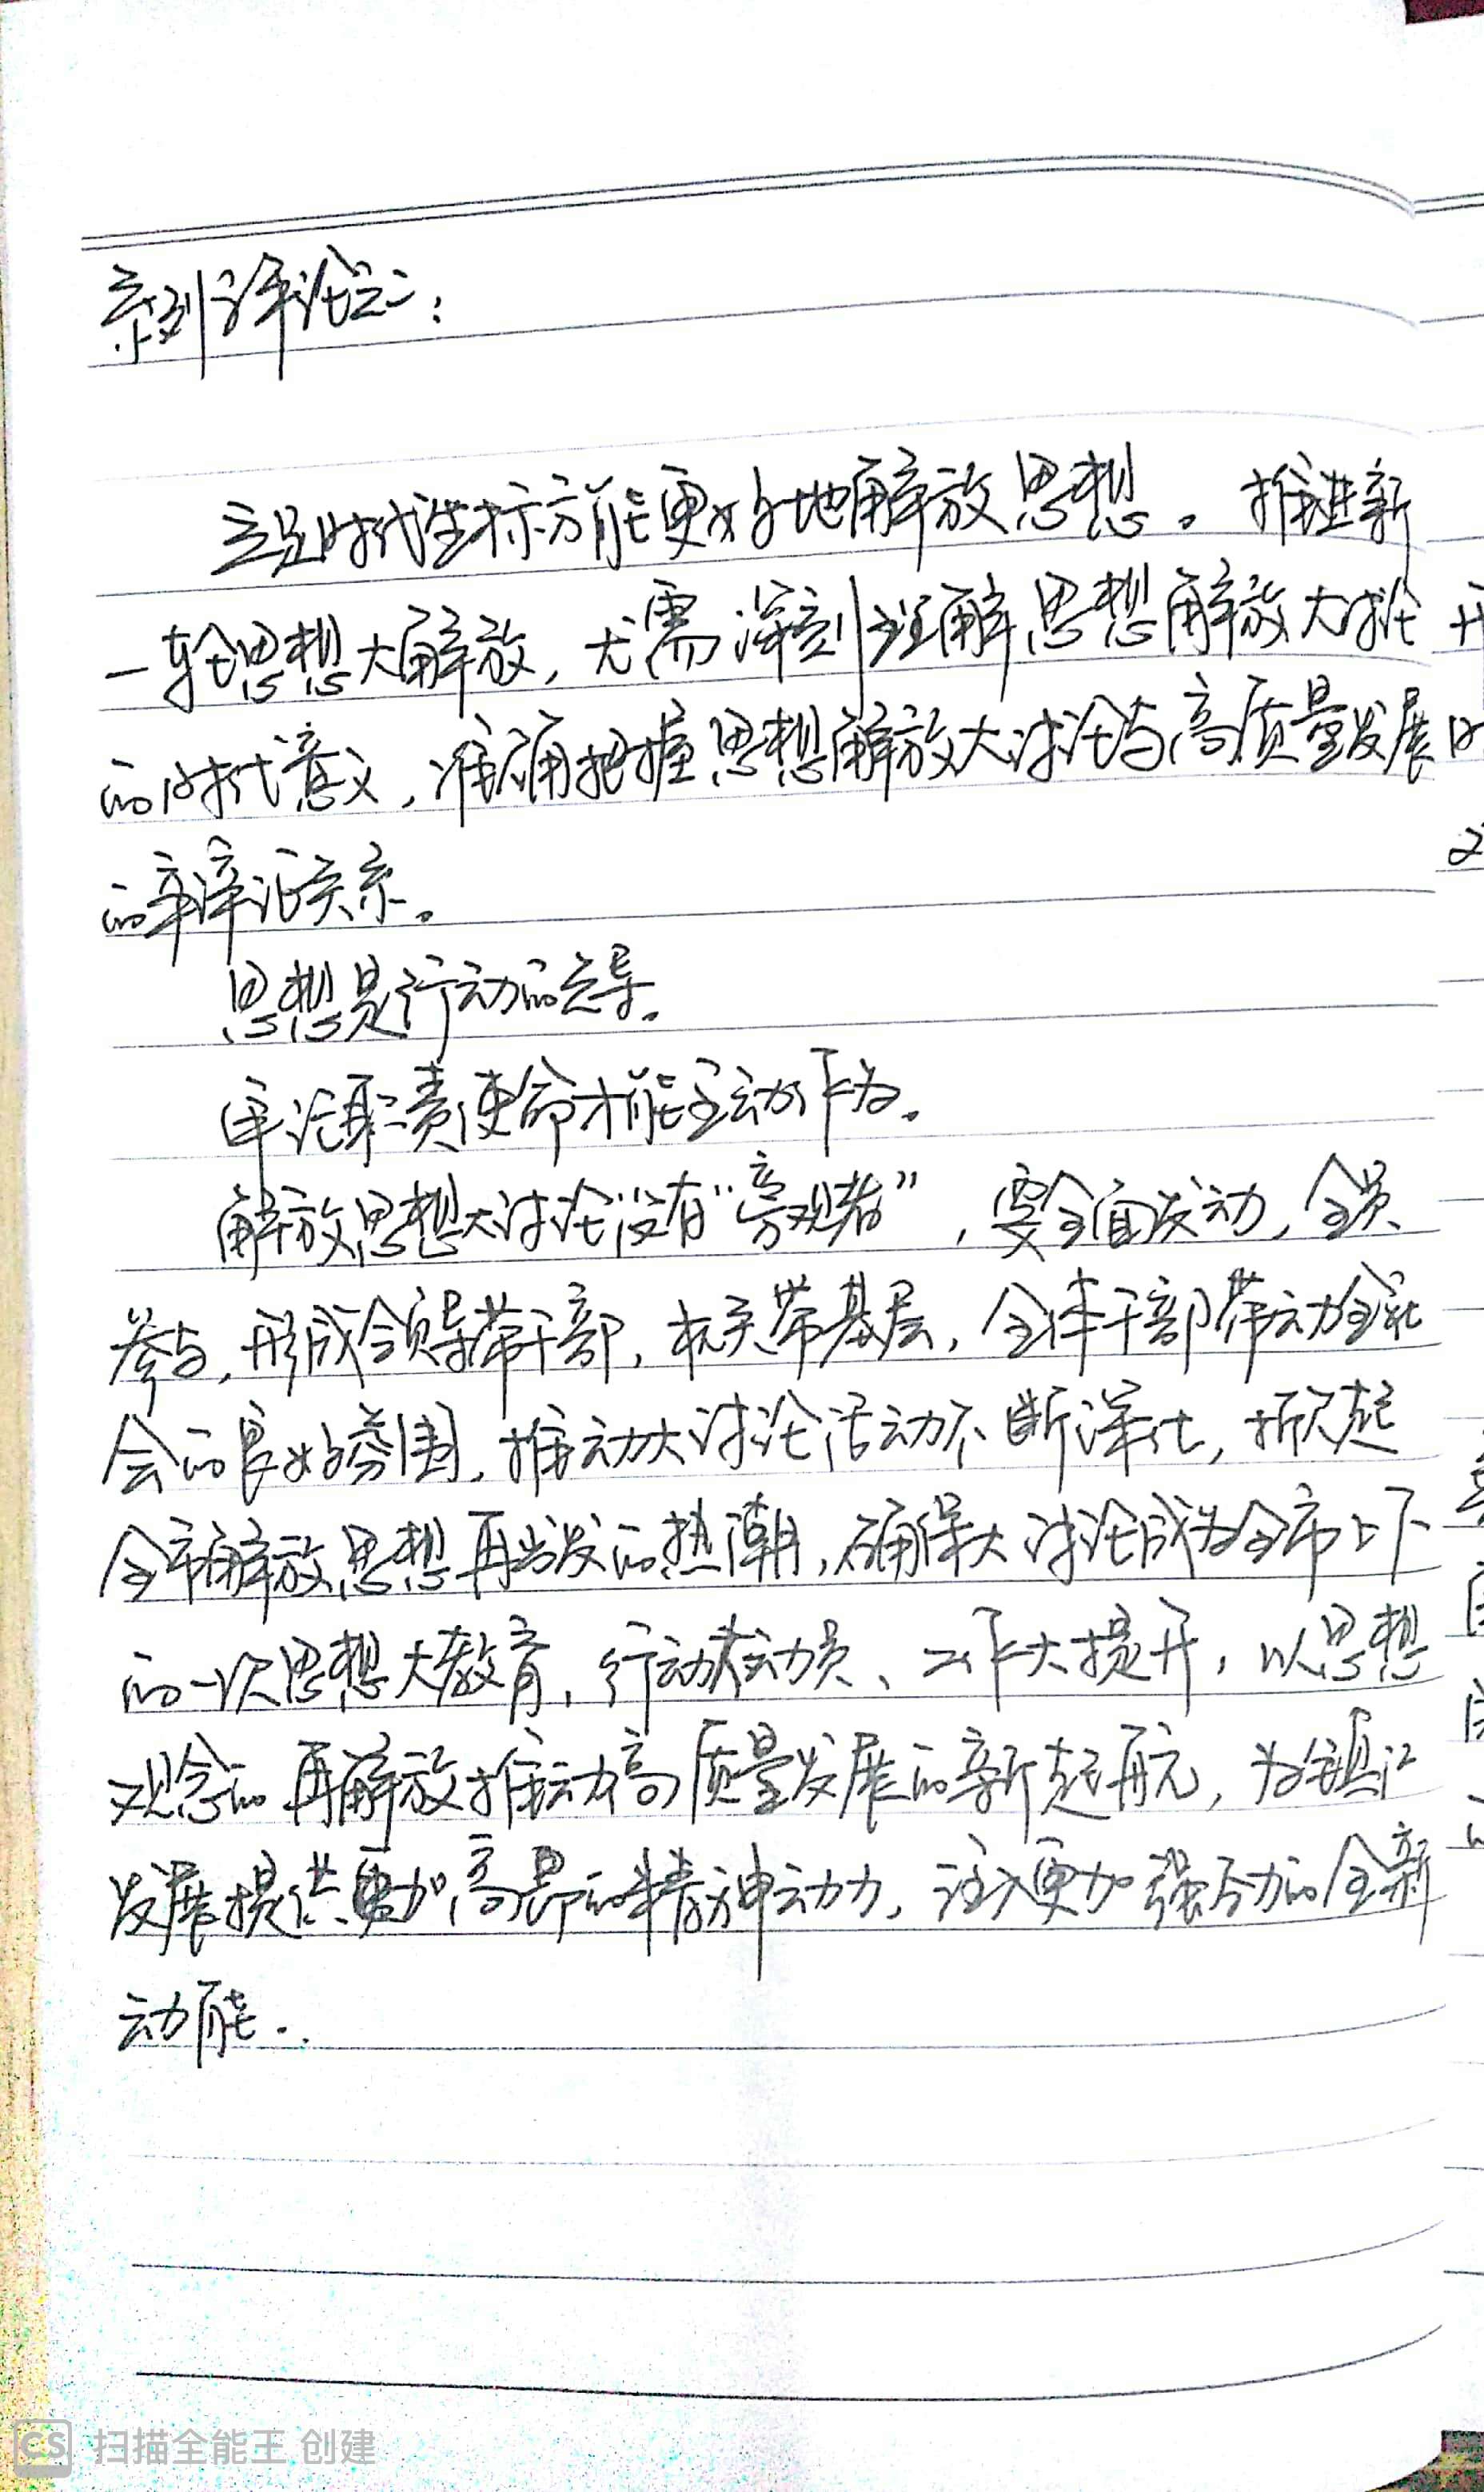 系列评论之二：
立足时代坐标方能更好地解放思想。推进新
一轮思想大解放，尤需深刻理解思想解放大讨论
的时代意义，准确把握思想解放大讨论与高质量发展
的辩证关系。
思想是行动的先导。
牢记职责使命才能主动作为。
解放思想大讨论没有“旁观者”，要全面发动，全员
参与，形成领导带干部，机关带基层，全体干部带动全社
会的良好氛围，推动大讨论活动不断深化，掀起
全市解放思想再出发的热潮，确保大讨论成为全市上下
的一次思想大教育，行动大动员、工作大提升，以思想
观念的再解放推动高质量发展的新起航，为镇江
发展提供更加高昂的精神动力，注入更加强劲的全新
动能..
CS 扫描全能王 创建